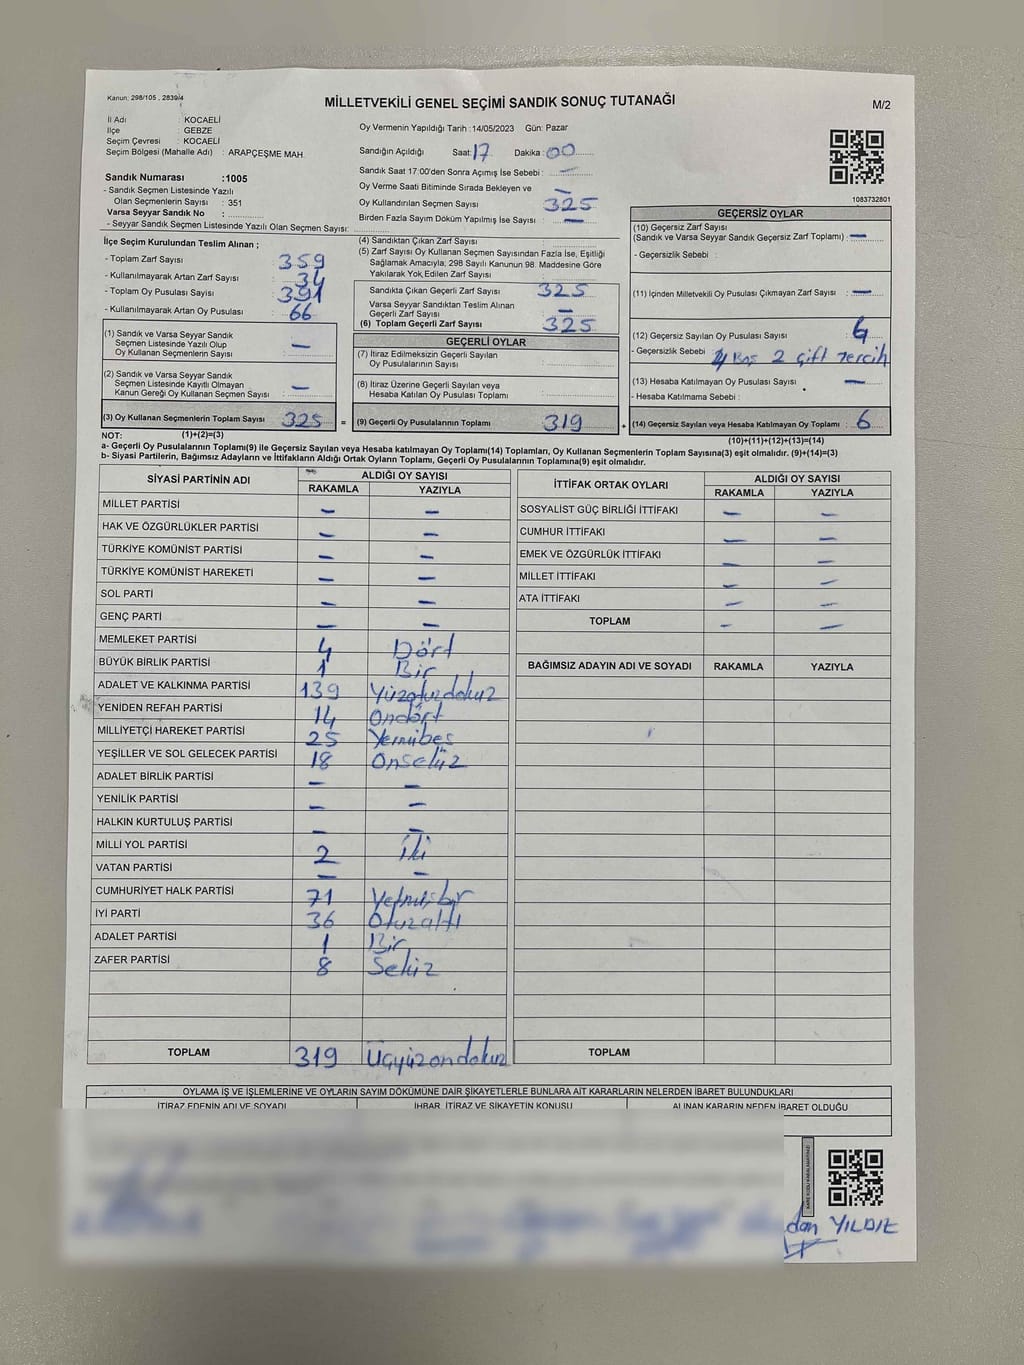 Kanun: 298/105 , 2839/4
MİLLETVEKİLİ GENEL SEÇİMİ SANDIK SONUÇ TUTANAĞI
M/2
İl Adı : KOCAELİ
İlçe : GEBZE
Seçim Çevresi : KOCAELİ
Seçim Bölgesi (Mahalle Adı) : ARAPÇEŞME MAH.
Sandık Numarası :1005
- Sandık Seçmen Listesinde Yazılı
Olan Seçmenlerin Sayısı : 351
Varsa Seyyar Sandık No :
- Seyyar Sandık Seçmen Listesinde Yazılı Olan Seçmen Sayısı:
Oy Vermenin Yapıldığı Tarih :14/05/2023 Gün: Pazar
Sandığın Açıldığı Saat:17 Dakika:00
Sandık Saat 17:00'den Sonra Açımış İse Sebebi : —
Oy Verme Saati Bitiminde Sırada Bekleyen ve
Oy Kullandırılan Seçmen Sayısı : — 325
Birden Fazla Sayım Döküm Yapılmış İse Sayısı : —
1083732801
İlçe Seçim Kurulundan Teslim Alınan ;
- Toplam Zarf Sayısı : 359
- Kullanılmayarak Artan Zarf Sayısı : 34
- Toplam Oy Pusulası Sayısı : 391
- Kullanılmayarak Artan Oy Pusulası : 66
(1) Sandık ve Varsa Seyyar Sandık
Seçmen Listesinde Yazılı Olup
Oy Kullanan Seçmenlerin Sayısı : —
(2) Sandık ve Varsa Seyyar Sandık
Seçmen Listesinde Kayıtlı Olmayan
Kanun Gereği Oy Kullanan Seçmen Sayısı : —
(3) Oy Kullanan Seçmenlerin Toplam Sayısı : 325 =
(4) Sandıktan Çıkan Zarf Sayısı :
(5) Zarf Sayısı Oy Kullanan Seçmen Sayısından Fazla İse, Eşitliği
Sağlamak Amacıyla; 298 Sayılı Kanunun 98. Maddesine Göre
Yakılarak Yok Edilen Zarf Sayısı :
Sandıkta Çıkan Geçerli Zarf Sayısı : 325
Varsa Seyyar Sandıktan Teslim Alınan
Geçerli Zarf Sayısı : —
(6) Toplam Geçerli Zarf Sayısı : 325
GEÇERLİ OYLAR
(7) İtiraz Edilmeksizin Geçerli Sayılan
Oy Pusulalarının Sayısı :
(8) İtiraz Üzerine Geçerli Sayılan veya
Hesaba Katılan Oy Pusulası Toplamı :
(9) Geçerli Oy Pusulalarının Toplamı : 319 +
GEÇERSİZ OYLAR
(10) Geçersiz Zarf Sayısı
(Sandık ve Varsa Seyyar Sandık Geçersiz Zarf Toplamı) : —
- Geçersizlik Sebebi :
(11) İçinden Milletvekili Oy Pusulası Çıkmayan Zarf Sayısı : —
(12) Geçersiz Sayılan Oy Pusulası Sayısı : 6
- Geçersizlik Sebebi : 4 Boş 2 çift tercih
(13) Hesaba Katılmayan Oy Pusulası Sayısı : —
- Hesaba Katılmama Sebebi :
(14) Geçersiz Sayılan veya Hesaba Katılmayan Oy Toplamı : 6
NOT: (1)+(2)=(3) (10)+(11)+(12)+(13)=(14)
a- Geçerli Oy Pusulalarının Toplamı(9) ile Geçersiz Sayılan veya Hesaba katılmayan Oy Toplamı(14) Toplamları, Oy Kullanan Seçmenlerin Toplam Sayısına(3) eşit olmalıdır. (9)+(14)=(3)
b- Siyasi Partilerin, Bağımsız Adayların ve İttifakların Aldığı Ortak Oyların Toplamı, Geçerli Oy Pusulalarının Toplamına(9) eşit olmalıdır.
SİYASİ PARTİNİN ADI ALDIĞI OY SAYISI
RAKAMLA YAZIYLA
MİLLET PARTİSİ — —
HAK VE ÖZGÜRLÜKLER PARTİSİ — —
TÜRKİYE KOMÜNİST PARTİSİ — —
TÜRKİYE KOMÜNİST HAREKETİ — —
SOL PARTİ — —
GENÇ PARTİ — —
MEMLEKET PARTİSİ 4 Dört
BÜYÜK BİRLİK PARTİSİ 1 Bir
ADALET VE KALKINMA PARTİSİ 139 Yüzotuzdokuz
YENİDEN REFAH PARTİSİ 14 Ondört
MİLLİYETÇİ HAREKET PARTİSİ 25 Yirmibeş
YEŞİLLER VE SOL GELECEK PARTİSİ 18 Onsekiz
ADALET BİRLİK PARTİSİ — —
YENİLİK PARTİSİ — —
HALKIN KURTULUŞ PARTİSİ — —
MİLLİ YOL PARTİSİ 2 İki
VATAN PARTİSİ — —
CUMHURİYET HALK PARTİSİ 71 Yetmişbir
İYİ PARTİ 36 Otuzaltı
ADALET PARTİSİ 1 Bir
ZAFER PARTİSİ 8 Sekiz
TOPLAM 319 Üçyüzondokuz
İTTİFAK ORTAK OYLARI ALDIĞI OY SAYISI
RAKAMLA YAZIYLA
SOSYALİST GÜÇ BİRLİĞİ İTTİFAKI — —
CUMHUR İTTİFAKI — —
EMEK VE ÖZGÜRLÜK İTTİFAKI — —
MİLLET İTTİFAKI — —
ATA İTTİFAKI — —
TOPLAM — —
BAĞIMSIZ ADAYIN ADI VE SOYADI RAKAMLA YAZIYLA
TOPLAM
OYLAMA İŞ VE İŞLEMLERİNE VE OYLARIN SAYIM DÖKÜMÜNE DAİR ŞİKAYETLERLE BUNLARA AİT KARARLARIN NELERDEN İBARET BULUNDUKLARI
İTİRAZ EDENİN ADI VE SOYADI İHBAR, İTİRAZ VE ŞİKAYETİN KONUSU ALINAN KARARIN NEDEN İBARET OLDUĞU
dan YILDIZ